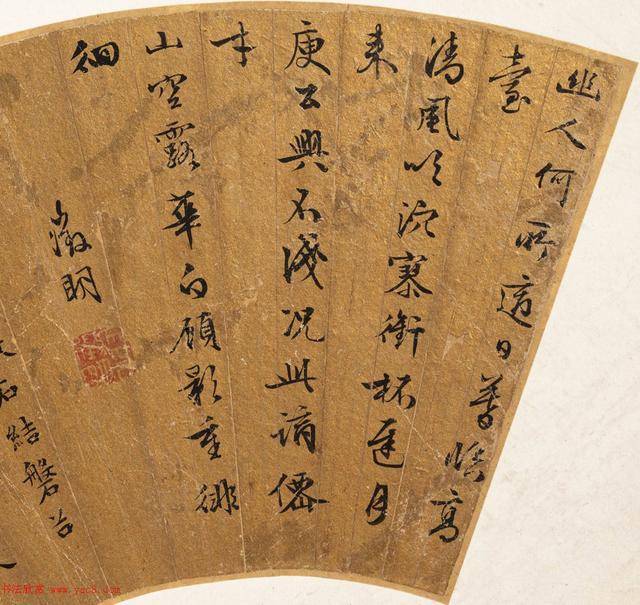 幽人何所適日暮臨高
臺
清風吹泬寥銜杯遲月
來
庾公興不淺况此謫僊
才
山空露華白顧影重徘
徊
徵明
石結磐
书法欣赏 www.yac8.com